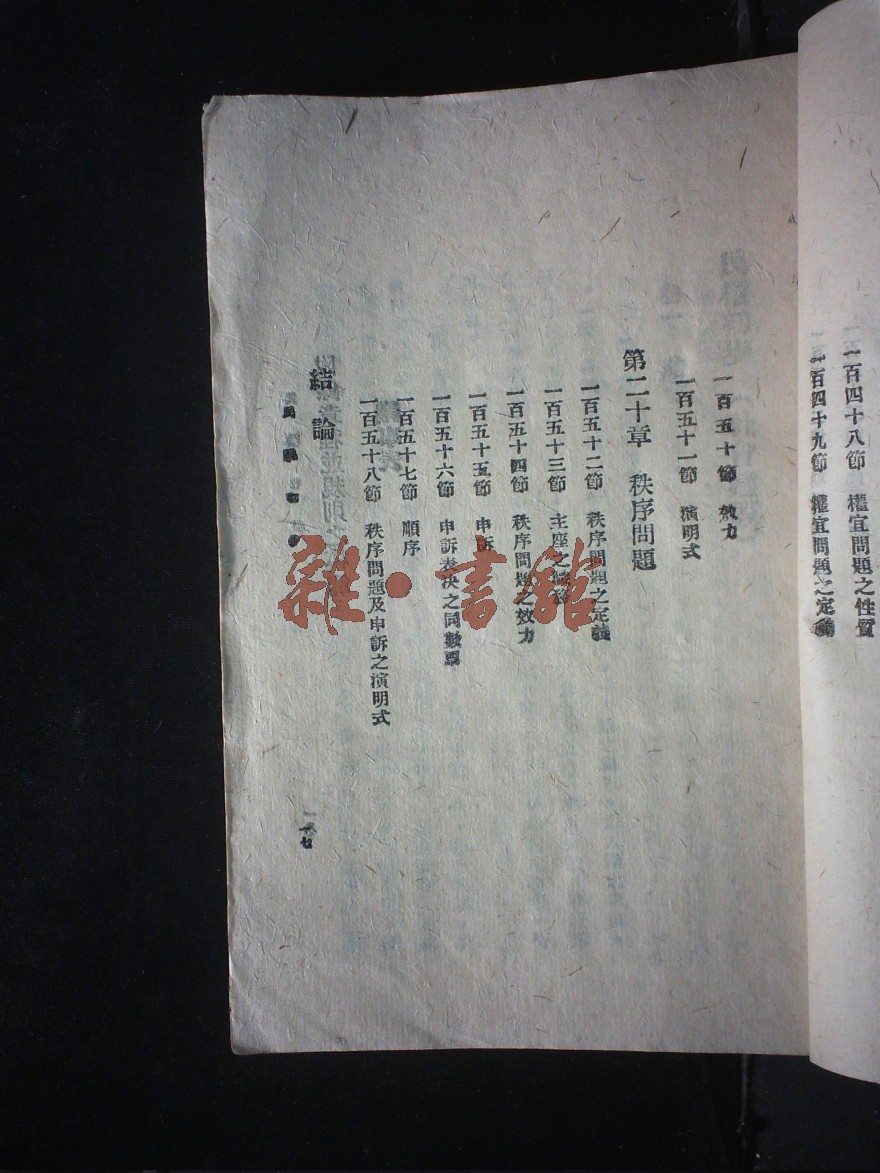 一百四十八節 權宜問題之性質
一百四十九節 權宜問題之定義
一百五十節 效力
一百五十一節 演明式
第二十章 秩序問題
一百五十二節 秩序問題之定義
一百五十三節 主座之職務
一百五十四節 秩序問題之效力
一百五十五節 申訴
一百五十六節 申訴表决之同數票
一百五十七節 順序
一百五十八節 秩序問題及申訴之演明式
結論
雜·書館